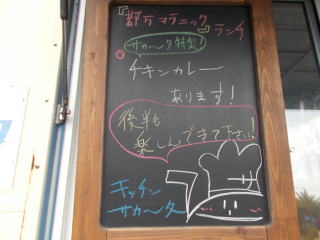 『都万マラニック』
ランチ
サカータ特製!
チキンカレー
あります!
後半も
楽しんできて下さい!
キッチン
サカータ
サ